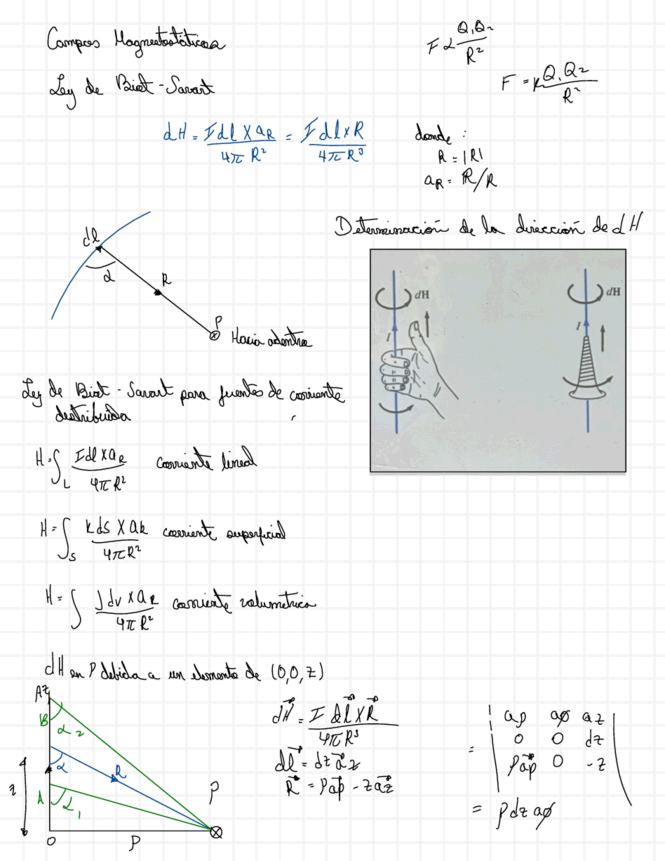 Campos Magnetostáticos
F α Q₁Q₂ / R²
F = k Q₁Q₂ / R²
Ley de Biot - Savart
dH = I dl X aR / 4π R² = I dl x R / 4π R³
donde :
R = |R|
aR = R/R
Determinación de la dirección de dH
dl
α
R
P
Hacia adentro
dH
I
dH
I
Ley de Biot - Savart para fuentes de corriente
distribuida
H = ∫L I dl x aR / 4π R² corriente lineal
H = ∫S k dS X aR / 4π R² corriente superficial
H = ∫ J dv x aR / 4π R² corriente volumetrica
dH en P debida a un elemento de (0,0,z)
Az
B
α₂
α
R
z
A
α₁
P
O
ρ
dH = I dl x R / 4π R³
dl = dz az
R = ρ aρ - z az
= | aρ aφ az
0 0 dz
ρ aρ 0 -z |
= ρ dz aφ